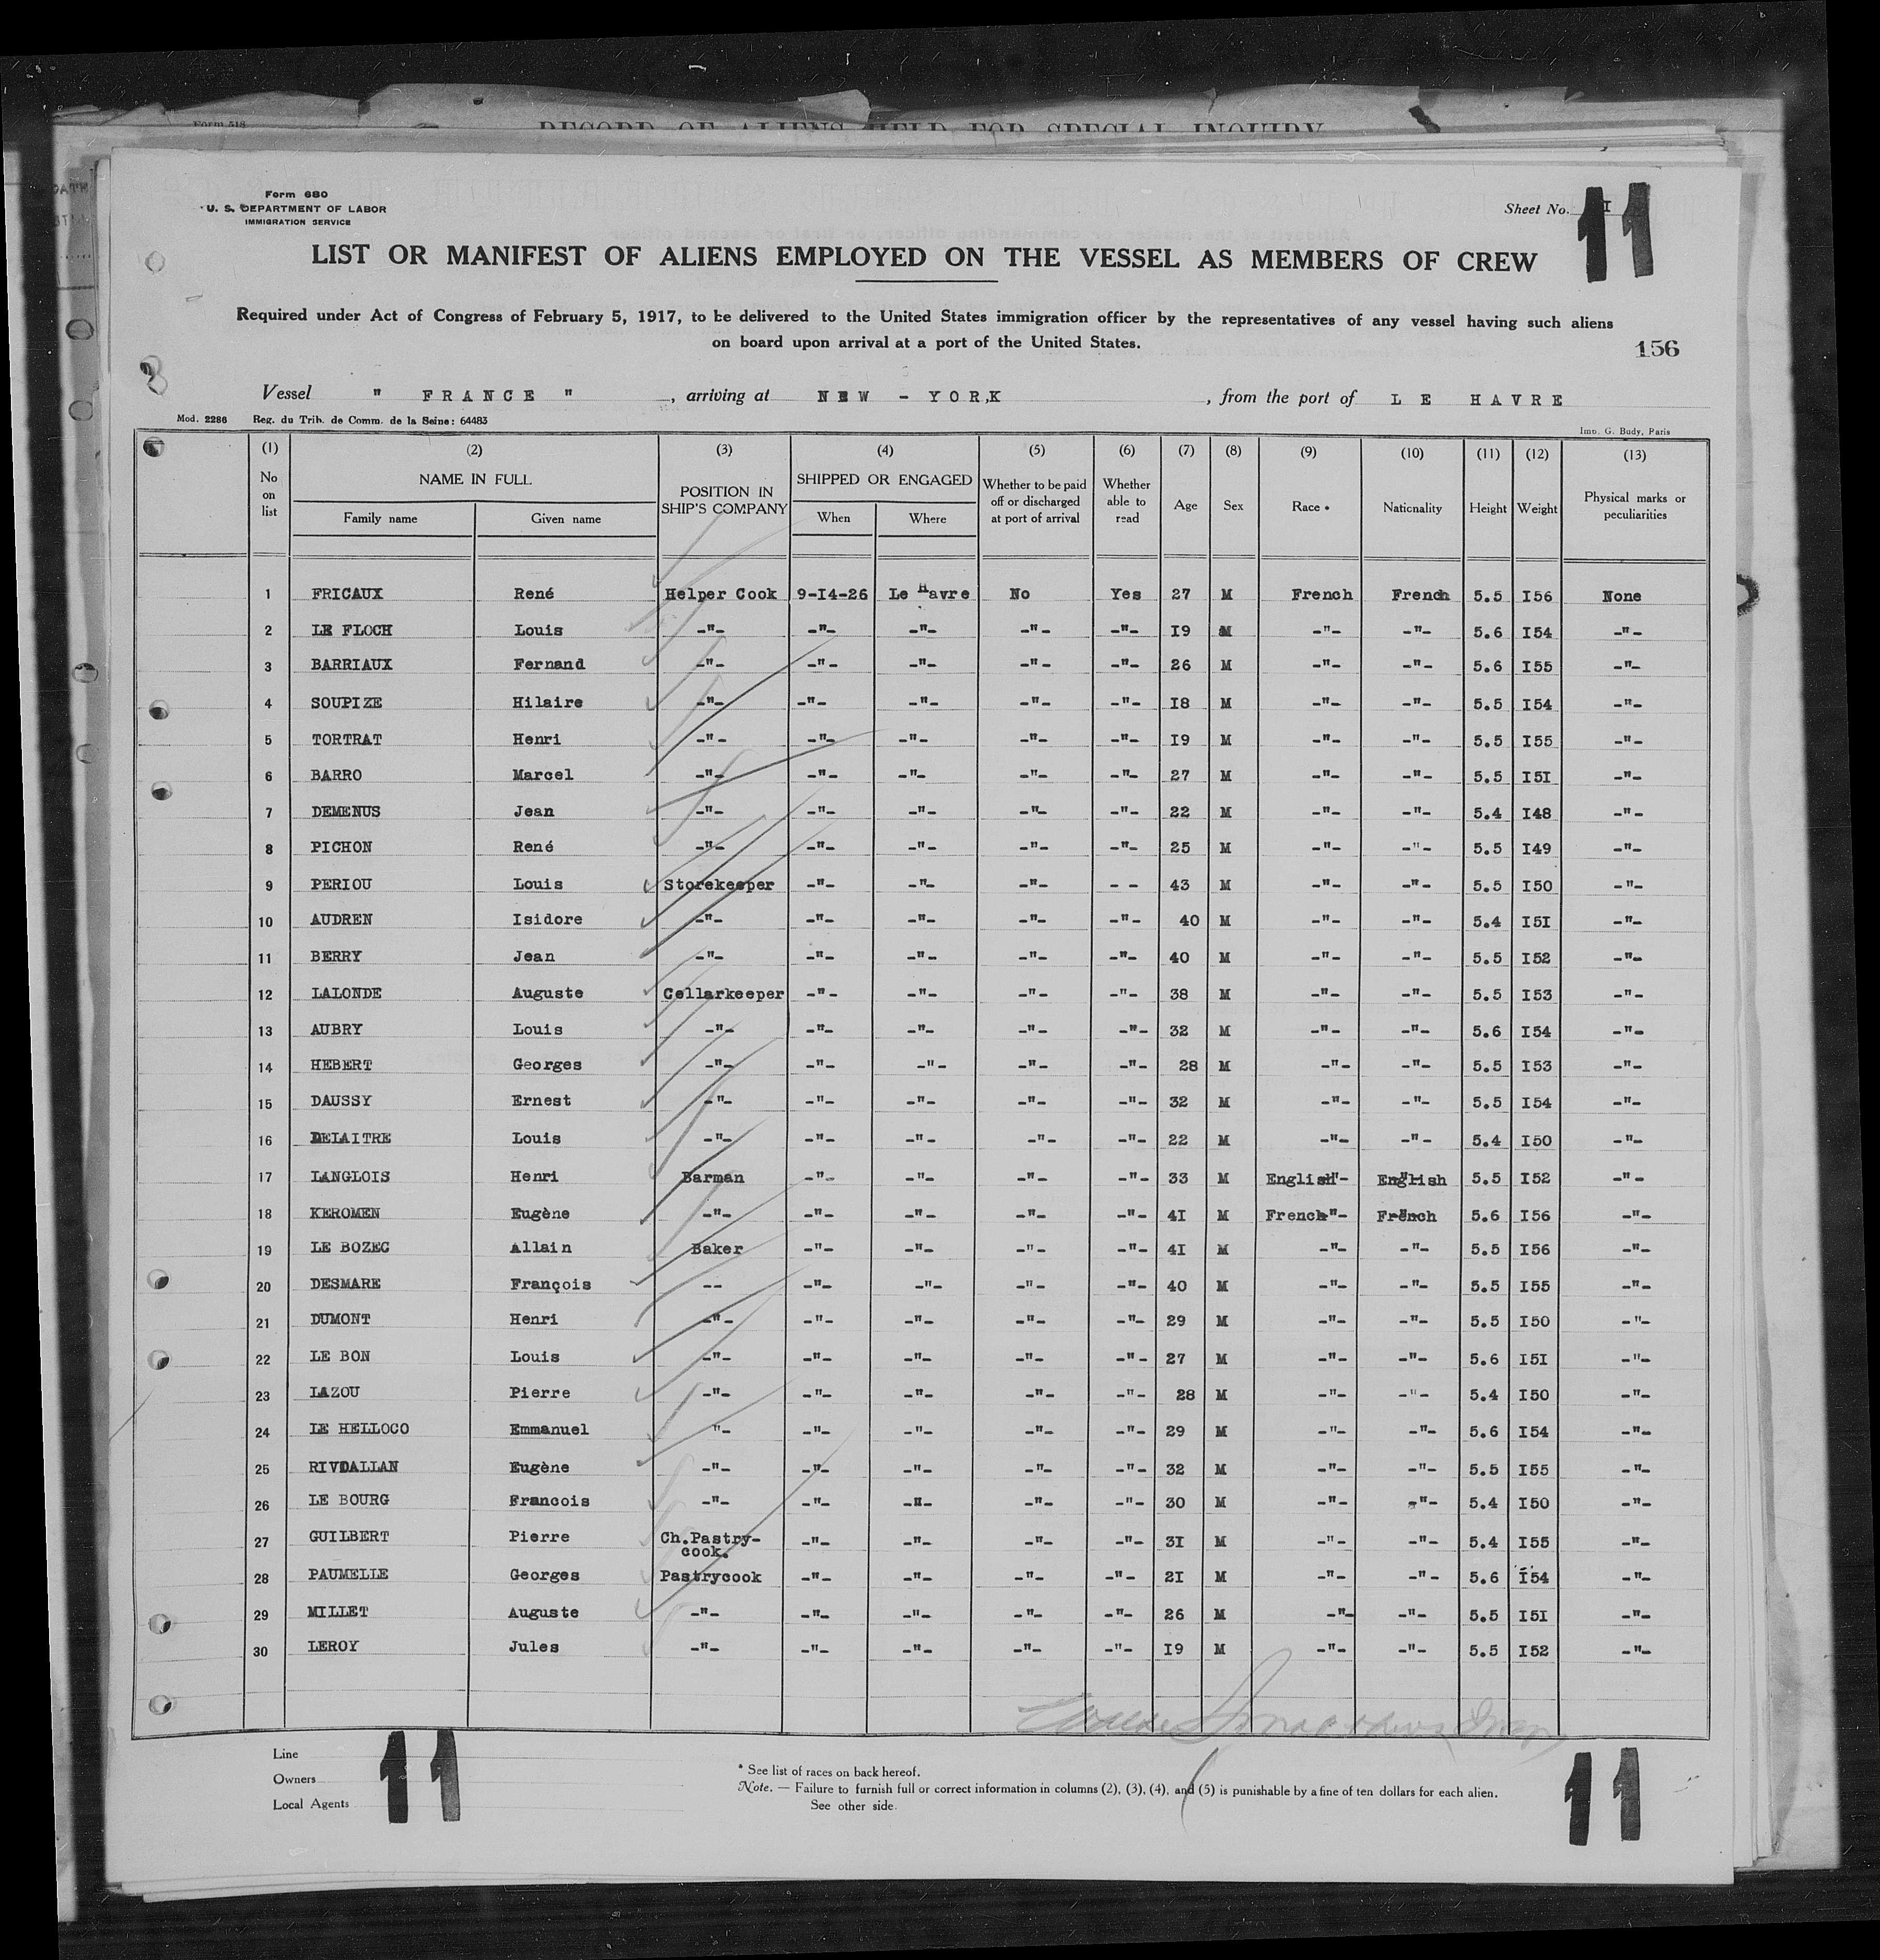 Form 518
RECORD OF ALIENS HELD FOR SPECIAL INQUIRY
Form 680
U. S. DEPARTMENT OF LABOR
IMMIGRATION SERVICE
Sheet No.
11
LIST OR MANIFEST OF ALIENS EMPLOYED ON THE VESSEL AS MEMBERS OF CREW
Required under Act of Congress of February 5, 1917, to be delivered to the United States immigration officer by the representatives of any vessel having such aliens
on board upon arrival at a port of the United States.
156
Vessel " FRANCE " , arriving at NEW - YORK , from the port of LE HAVRE
Mod. 2286 Reg. du Trib. de Comm. de la Seine: 64483 Imp. G. Budy, Paris
(1) (2) (3) (4) (5) (6) (7) (8) (9) (10) (11) (12) (13)
No on list NAME IN FULL POSITION IN SHIP'S COMPANY SHIPPED OR ENGAGED Whether to be paid off or discharged at port of arrival Whether able to read Age Sex Race * Nationality Height Weight Physical marks or peculiarities
Family name Given name When Where
1 FRICAUX René Helper Cook 9-I4-26 Le Havre No Yes 27 M French French 5.5 I56 None
2 LE FLOCH Louis -"- -"- -"- -"- -"- I9 M -"- -"- 5.6 I54 -"-
3 BARRIAUX Fernand -"- -"- -"- -"- -"- 26 M -"- -"- 5.6 I55 -"-
4 SOUPIZE Hilaire -"- -"- -"- -"- -"- I8 M -"- -"- 5.5 I54 -"-
5 TORTRAT Henri -"- -"- -"- -"- -"- I9 M -"- -"- 5.5 I55 -"-
6 BARRO Marcel -"- -"- -"- -"- -"- 27 M -"- -"- 5.5 I5I -"-
7 DEMENUS Jean -"- -"- -"- -"- -"- 22 M -"- -"- 5.4 I48 -"-
8 PICHON René -"- -"- -"- -"- -"- 25 M -"- -"- 5.5 I49 -"-
9 PERIOU Louis Storekeeper -"- -"- -"- - - 43 M -"- -"- 5.5 I50 -"-
10 AUDREN Isidore -"- -"- -"- -"- -"- 40 M -"- -"- 5.4 I5I -"-
11 BERRY Jean -"- -"- -"- -"- -"- 40 M -"- -"- 5.5 I52 -"-
12 LALONDE Auguste Cellarkeeper -"- -"- -"- -"- 38 M -"- -"- 5.5 I53 -"-
13 AUBRY Louis -"- -"- -"- -"- -"- 32 M -"- -"- 5.6 I54 -"-
14 HEBERT Georges -"- -"- -"- -"- -"- 28 M -"- -"- 5.5 I53 -"-
15 DAUSSY Ernest -"- -"- -"- -"- -"- 32 M -"- -"- 5.5 I54 -"-
16 DELAITRE Louis -"- -"- -"- -"- -"- 22 M -"- -"- 5.4 I50 -"-
17 LANGLOIS Henri Barman -"- -"- -"- -"- 33 M English"- English 5.5 I52 -"-
18 KEROMEN Eugène -"- -"- -"- -"- -"- 4I M French"- French 5.6 I56 -"-
19 LE BOZEC Allain Baker -"- -"- -"- -"- 4I M -"- -"- 5.5 I56 -"-
20 DESMARE François -- -"- -"- -"- -"- 40 M -"- -"- 5.5 I55 -"-
21 DUMONT Henri -"- -"- -"- -"- -"- 29 M -"- -"- 5.5 I50 -"-
22 LE BON Louis -"- -"- -"- -"- -"- 27 M -"- -"- 5.6 I5I -"-
23 LAZOU Pierre -"- -"- -"- -"- -"- 28 M -"- -"- 5.4 I50 -"-
24 LE HELLOCO Emmanuel "- -"- -"- -"- -"- 29 M -"- -"- 5.6 I54 -"-
25 RIVOALLAN Eugène -"- -"- -"- -"- -"- 32 M -"- -"- 5.5 I55 -"-
26 LE BOURG Francois -"- -"- -"- -"- -"- 30 M -"- -"- 5.4 I50 -"-
27 GUILBERT Pierre Ch.Pastry-cook. -"- -"- -"- -"- 3I M -"- -"- 5.4 I55 -"-
28 PAUMELLE Georges Pastrycook -"- -"- -"- -"- 2I M -"- -"- 5.6 I54 -"-
29 MILLET Auguste -"- -"- -"- -"- -"- 26 M -"- -"- 5.5 I5I -"-
30 LEROY Jules -"- -"- -"- -"- -"- I9 M -"- -"- 5.5 I52 -"-
Line
Owners
Local Agents
11
* See list of races on back hereof.
Note. — Failure to furnish full or correct information in columns (2), (3), (4), and (5) is punishable by a fine of ten dollars for each alien.
See other side.
11